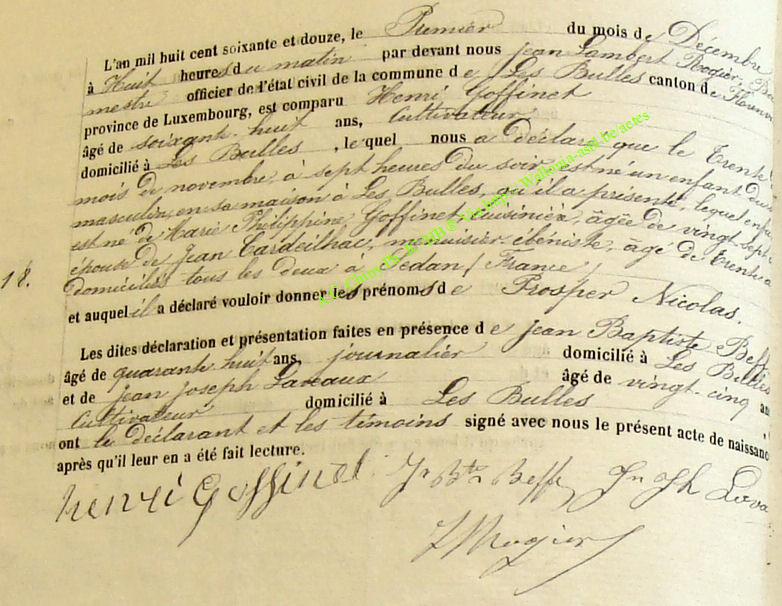 L'an mil huit cent soixante et douze, le Premier du mois de Décembre
à Huit heures du matin par devant nous Jean Lambert Rogier, Bourg
mestre officier de l'état civil de la commune de Les Bulles canton de Florenv
province de Luxembourg, est comparu Henri Goffinet
âgé de soixant-huit ans, Cultivateur
domicilié à Les Bulles, lequel nous a déclaré que le trente
mois de novembre, à sept heures du soir, est né un enfant du s
masculin, en sa maison à Les Bulles, qu'il a présenté, lequel enfan
est né de Marie Philippine Goffinet, cuisinière, âgée de vingt-sept a
épouse de Jean Cardeilhac, menuisier-ébéniste, âgé de trente
18. domiciliés tous les deux à Sedan (France)
et auquel il a déclaré vouloir donner les prénoms de Prosper Nicolas.
Les dites déclaration et présentation faites en présence de Jean Baptiste Beffe
âgé de quarante huit ans, journalier domicilié à Les Bulles
et de Jean Joseph Lavaux âgé de vingt-cinq an
Cultivateur domicilié à Les Bulles
ont le déclarant et les témoins signé avec nous le présent acte de naissance
après qu'il leur en a été fait lecture.
henri Goffinet Jn Bte Beffe Jn Jh Lava
LRogier